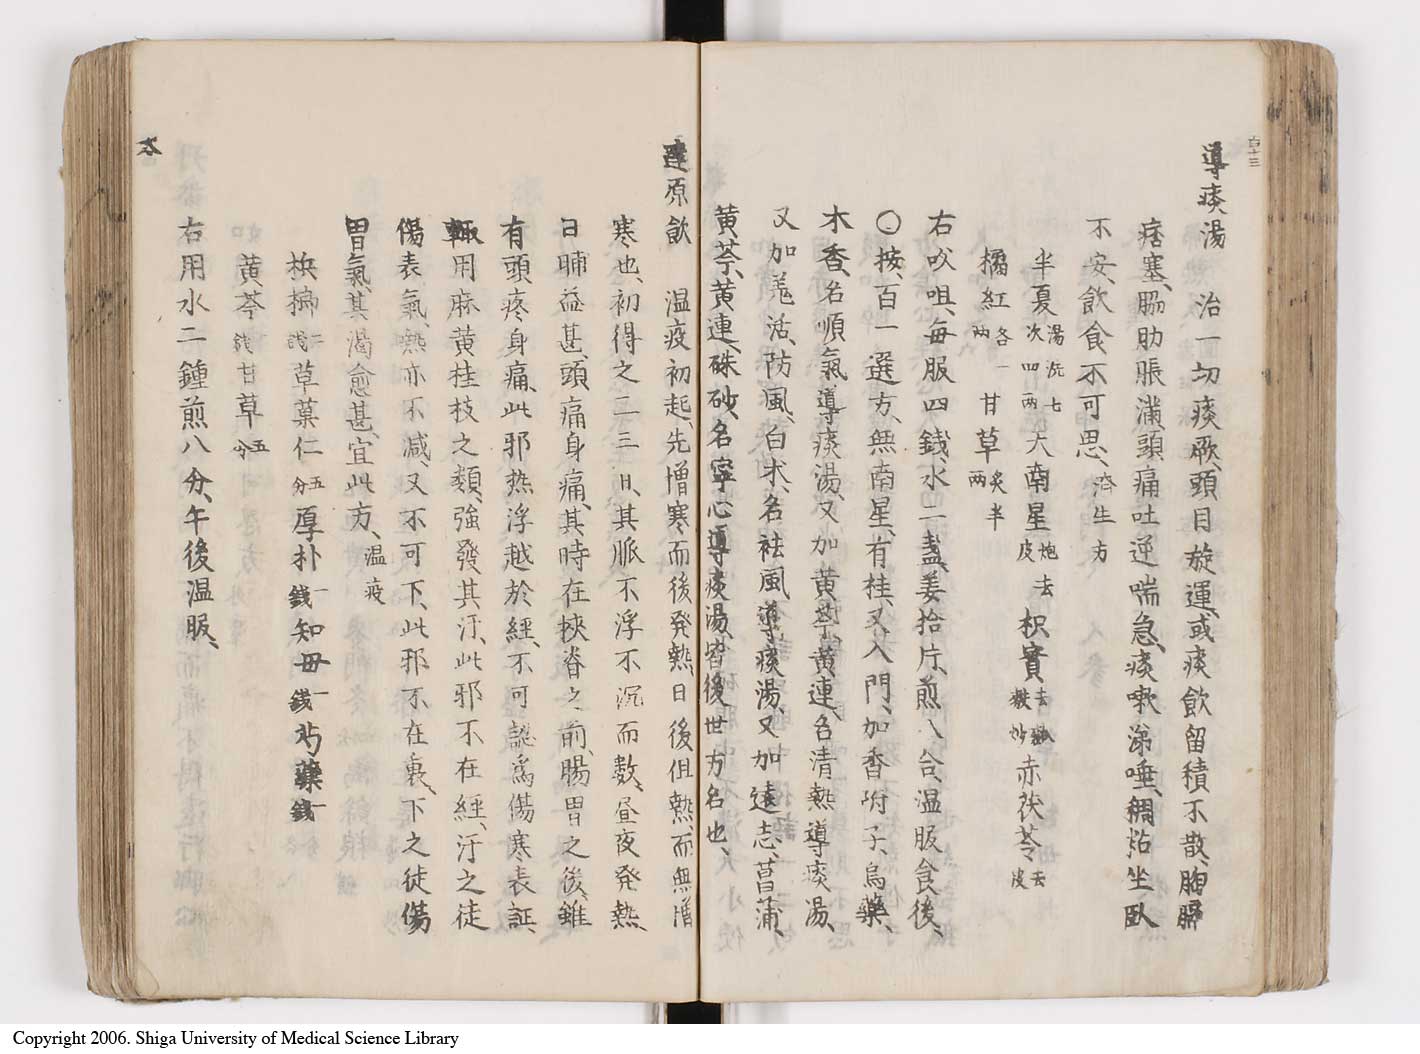 百十三
導痰湯　治一切痰厥、頭目旋運、或痰飲留積不散、胸膈
痞塞、脇肋脹滿、頭痛吐逆、喘急、痰嗽、涕唾、稠粘、坐臥
不安、飲食不可思、済生方
半夏 湯洗七次四両 天南星 炮去皮 枳實 去瓤麩炒 赤茯苓 去皮
橘紅 各一両 甘草 炙半両
右㕮咀、毎服四錢、水二盞、姜拾片、煎八合、温服食後、
〇按、百一選方、無南星、有桂、又入門、加香附子、烏藥、
木香、名順氣導痰湯、又加黄芩、黄連、名清熱導痰湯、
又加羗活、防風、白朮、名袪風導痰湯、又加遠志、菖蒲、
黄芩、黄連、硃砂、名寧心導痰湯、皆後世方名也、
達原飲　温疫初起、先憎寒而後発熱、日後但熱、而無憎
寒也、初得之二三日、其脈不浮不沉而數、昼夜発熱、
日晡益甚、頭痛身痛、其時在挾脊之前、腸胃之後、雖
有頭疼身痛、此邪热浮越於経、不可認為傷寒表証、
輙用麻黄桂枝之類、強發其汗、此邪不在経、汗之徒
傷表氣、熱亦不减、又不可下、此邪不在裏、下之徒傷
胃氣、其渴愈甚、宜此方、温疫
梹榔 二錢 草菓仁 五分 厚朴 一錢 知毋 一錢 芍藥 一錢
黄芩 一錢 甘草 五分
右用水二鍾煎八分、午後温服、